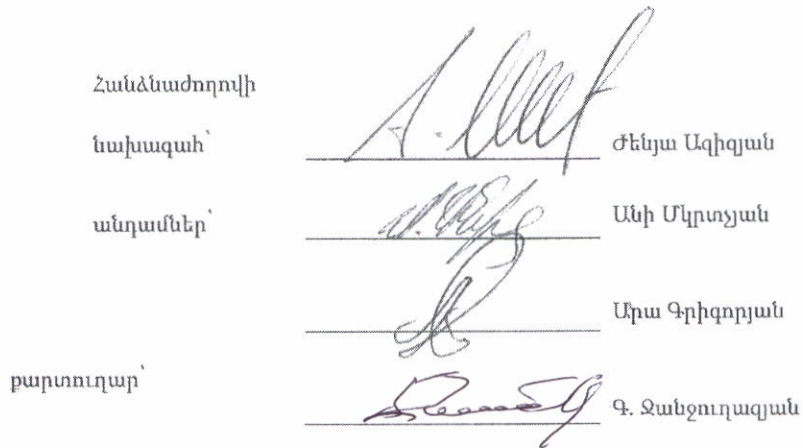 Հանձնաժողովի
նախագահ՝ Ժենյա Ազիզյան
անդամներ՝ Անի Մկրտչյան
Արա Գրիգորյան
քարտուղար՝ Գ. Ջանջուղազյան